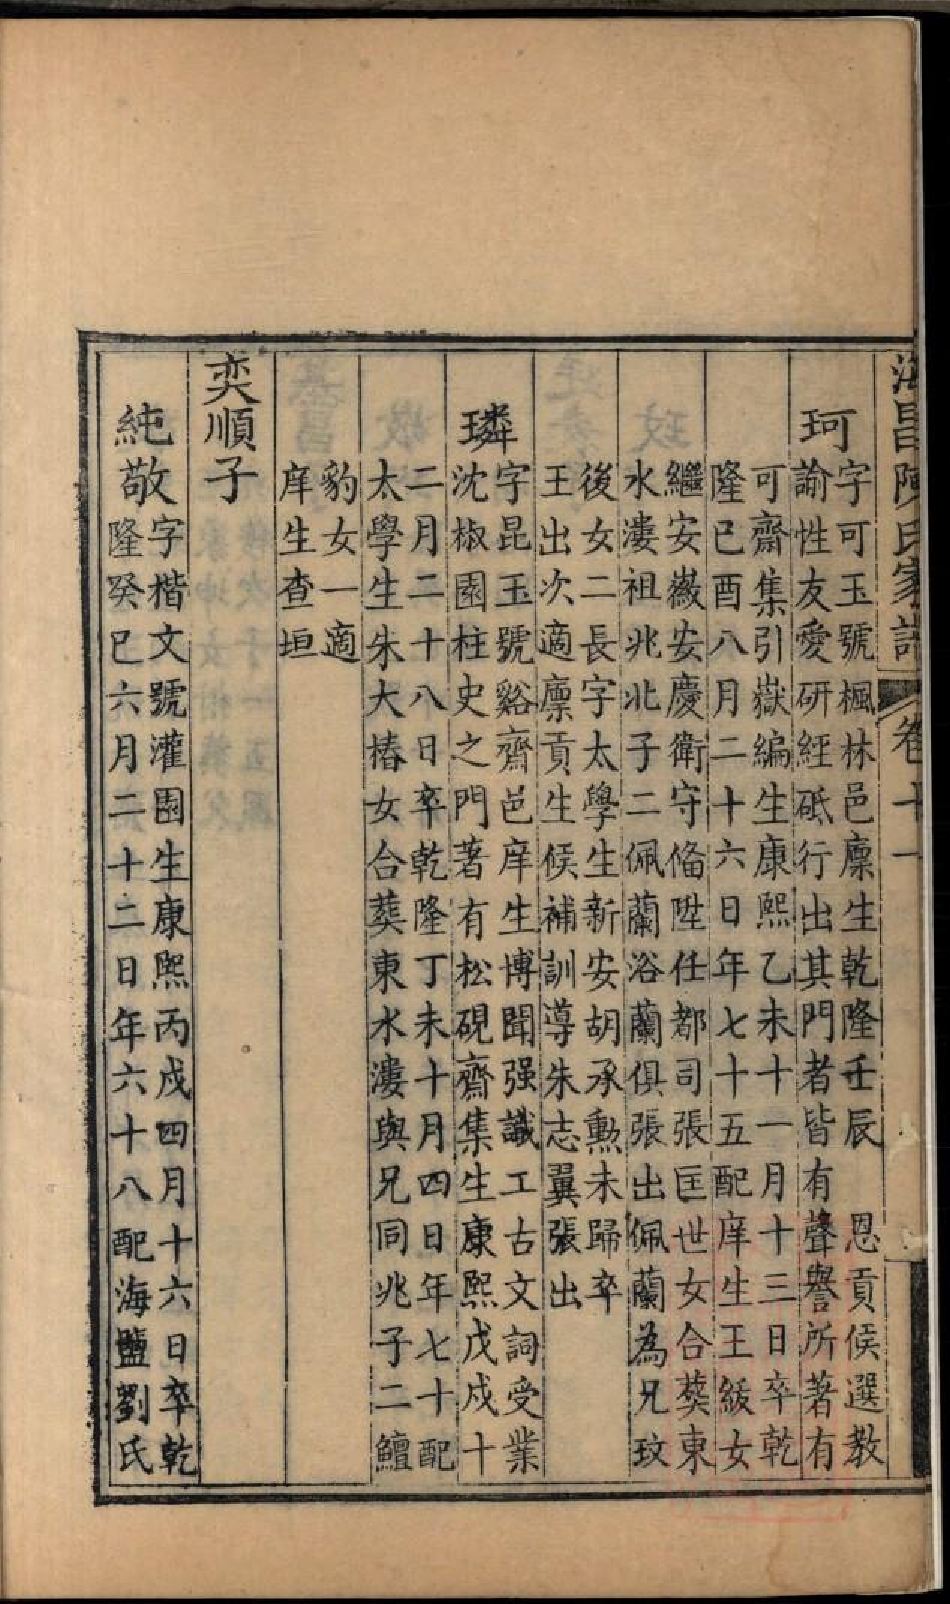 海昌陳氏家譜 卷十一
珂
字可玉號楓林邑廪生乾隆壬辰 恩貢候選教
諭性友愛研經砥行出其門者皆有聲譽所著有
可齋集引嶽編生康熙乙未十一月十三日卒乾
隆已酉八月二十六日年七十五配庠生王級女
繼安徽安慶衛守俻陞任都司張匡世女合葬東
水溇祖兆北子二佩蘭浴蘭俱張出佩蘭為兄玟
後女二長字太學生新安胡承勲未歸卒
王出次適廪貢生候補訓導朱志翼張出
璘
字昆玉號谿齋邑庠生博聞强識工古文詞受業
沈椒園柱史之門著有松硯齋集生康熙戊戌十
二月二十八日卒乾隆丁未十月四日年七十配
太學生朱大椿女合葬東水溇與兄同兆子二鱣
豹女一適
庠生查垣
奕順子
純敬
字楷文號灌園生康熙丙戌四月十六日卒乾
隆癸巳六月二十二日年六十八配海鹽劉氏